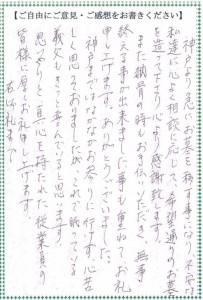 【ご自由にご意見・ご感想をお書きください】
神戸より急にお墓を移す事になり不安な
私達に心よく相談に応じて希望通りのお墓
を造って下さり心より感謝致します。
また納骨の時もお手伝いいただき、無事
終える事が出来ました事も重ねてお礼
申し上げます。ありがとうございました。
神戸まではなかなかお参りに行けず、心苦
しく思っておりましたが、これで眠っている
義父もきっと喜んでいると思います。
思いやりと真心を持たれた従業員の
皆様に厚くお礼申し上げます。